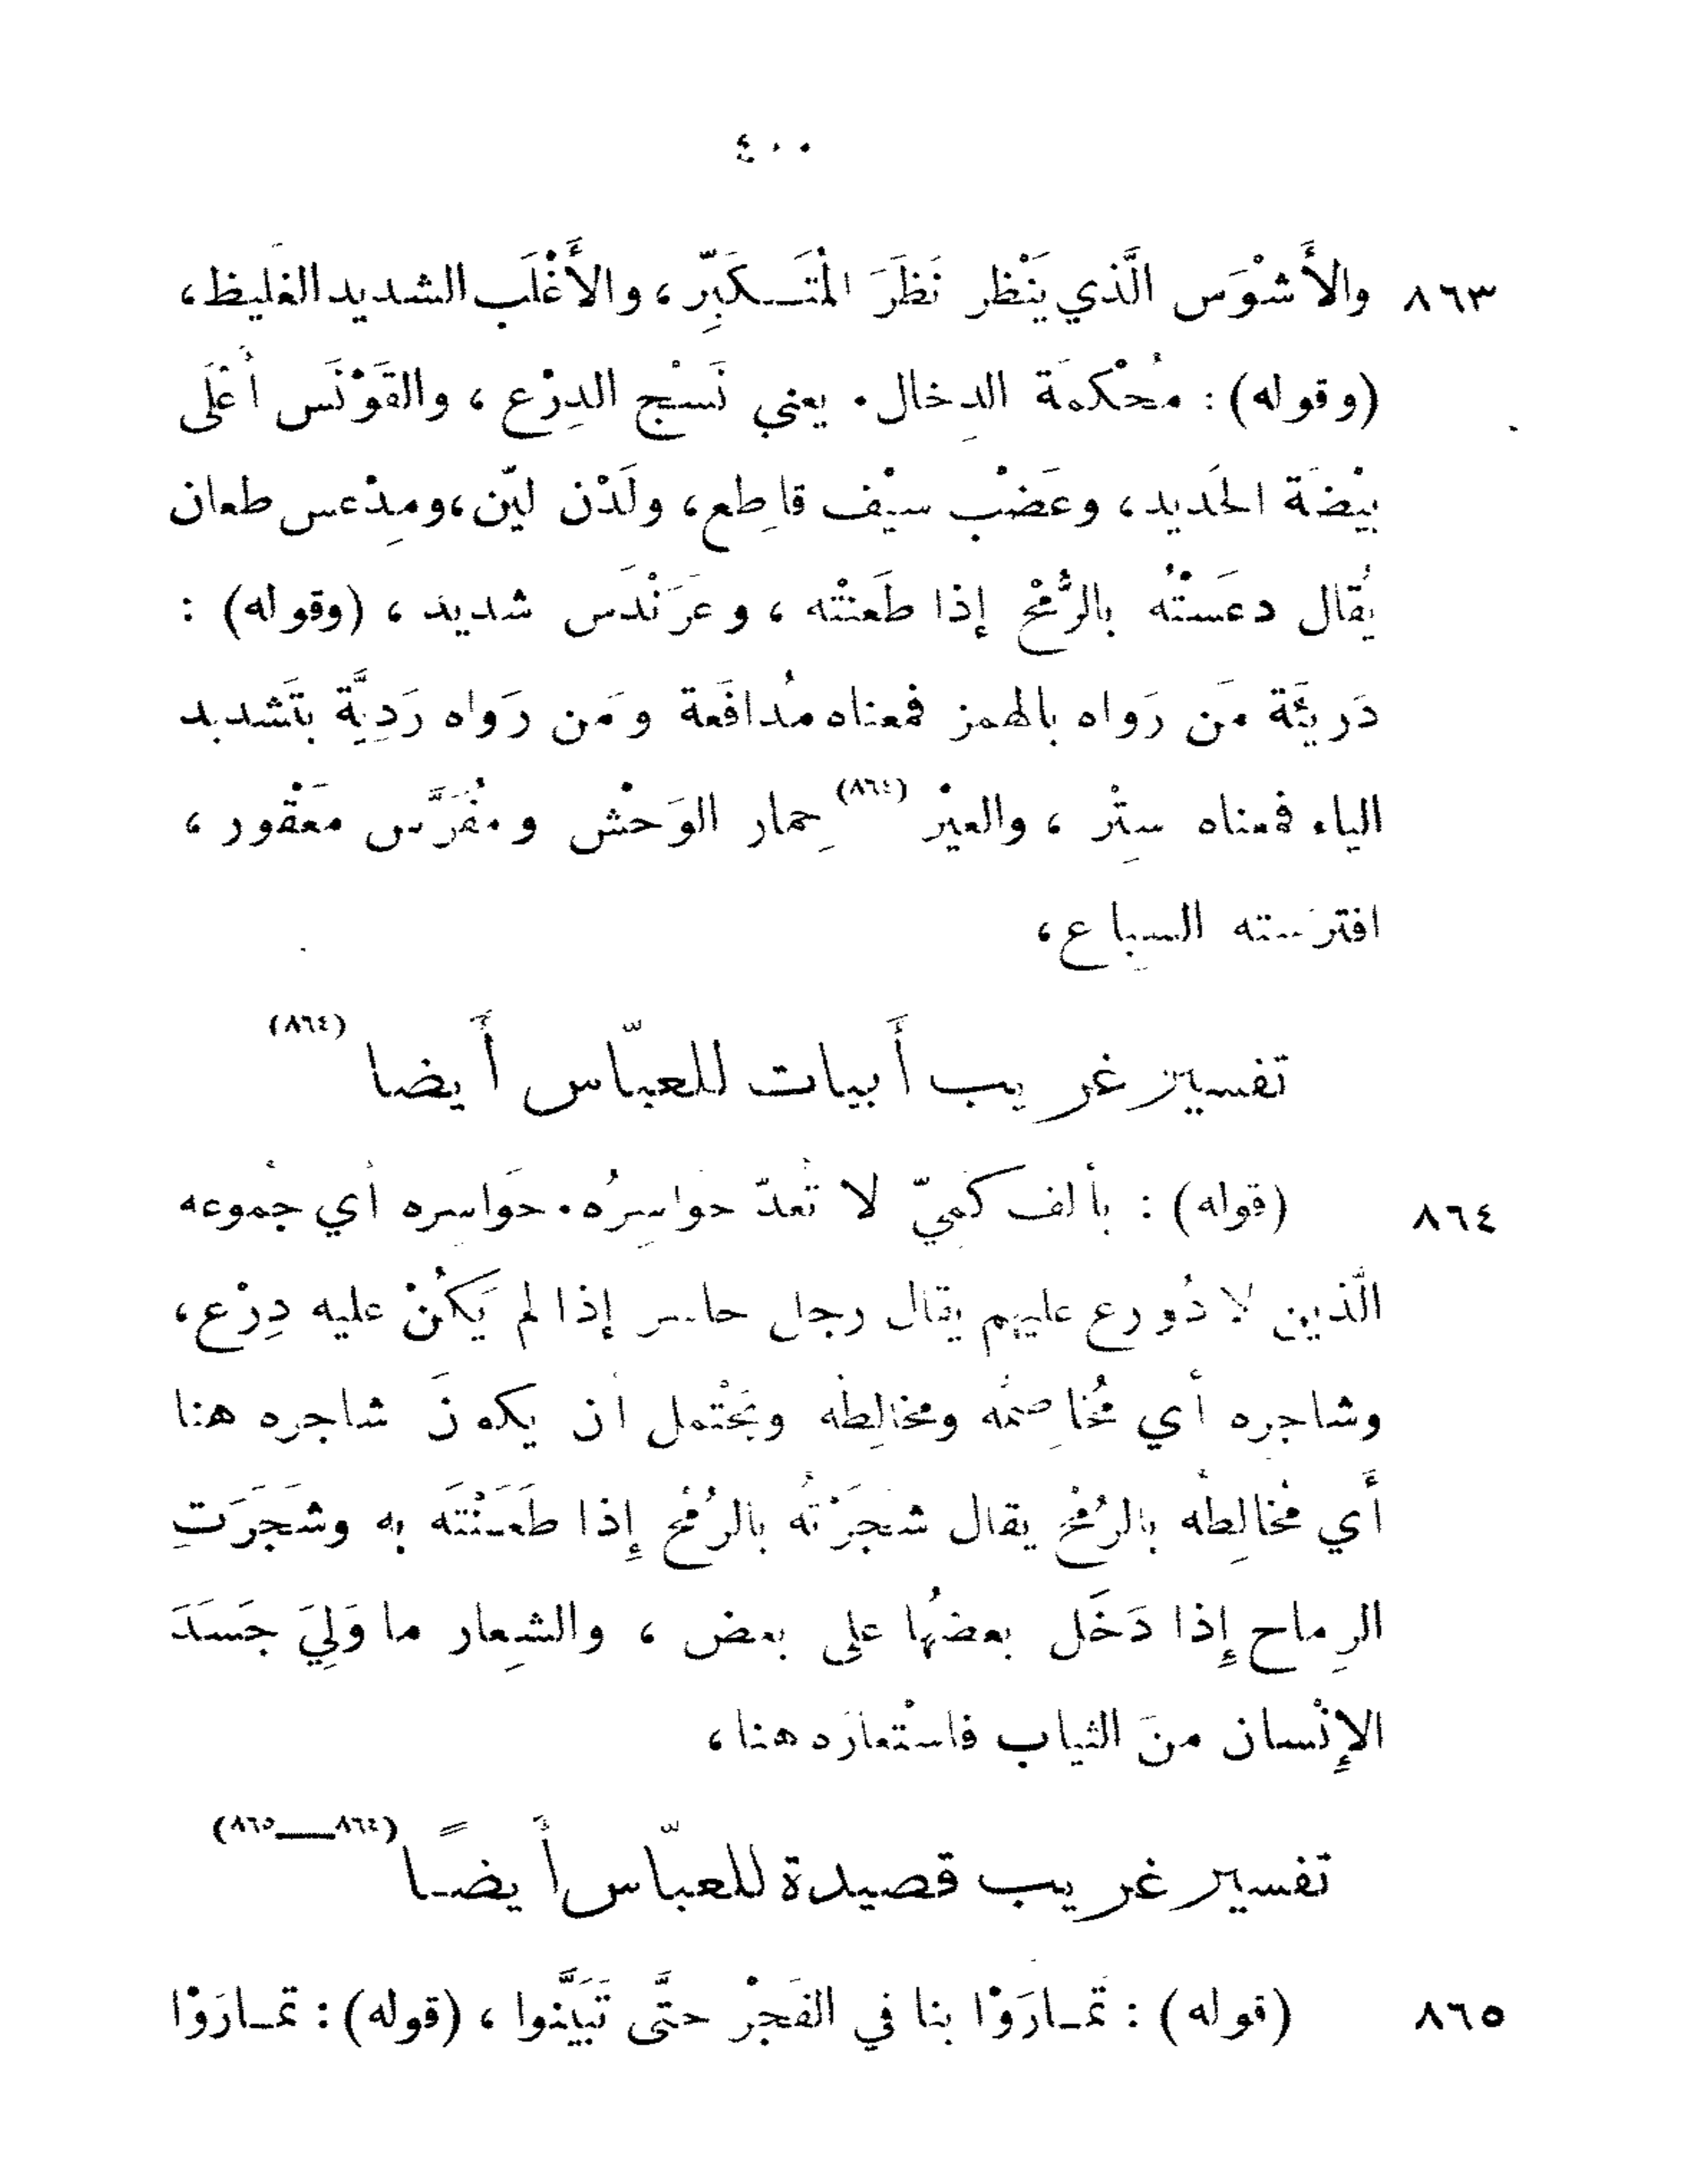 ٤٠٠
٨٦٣ والأَشْوَس الَّذي يَنْظر نَظَرَ المُتَـكَبِّر، والأَغْلَب الشديد الغَليظ،
(وقوله): مُحْكمَة الدِخال. يعني نَسْج الدِرْع، والقَوْنَس أَعْلَى
بيْضَة الحَديد، وعَضْب سيْف قاطِع، ولَدْن ليّن، ومِدْعس طعان
يُقال دعَسْتُه بالرُّمْح إذا طَعنْتْه، وعرَنْدَس شديد، (وقوله):
دَريئَة مَن رَواه بالهمز فمعناه مُدافَعة ومَن رَواه رَدِيَّة بتَشديد
الياء فمعناه سِتْر، والعيْر (٨٦٤) حِمار الوَحْش ومُفَرَّس معَقْور،
افترَسته السِباع،
تفسير غريب أَبيات للعبّاس أَيضا (٨٦٤)
٨٦٤ (قوله): بأَلف كَمِيّ لا تُعدّ حواسِرُه. حَواسِره أَي جُموعه
الَّذين لا دُورع عليهم يقال رجل حاسر إذا لم يَكُنْ عليه دِرْع،
وشاجره أَي مُخاصِمُه ومخالِطُه ويَحْتمل أَن يكونَ شاجره هنا
أَي مُخالِطُه بالرُمْح يقال شَجَرْتُه بالرُمْح إِذا طَعَـنْتَه به وشَجَرَتِ
الرِماح إِذا دَخَل بعضُها على بعض، والشِعار ما وَلِيَ جَسَدَ
الإِنْسان منَ الثياب فاسْتعارَه هنا،
تفسير غريب قصيدة للعبّاس أَيضًـا (٨٦٤ـ٨٦٥)
٨٦٥ (قوله): تَمـارَوْا بنا في الفَجْر حتَّى تَبَيَّنوا، (قوله): تمـارَوْا